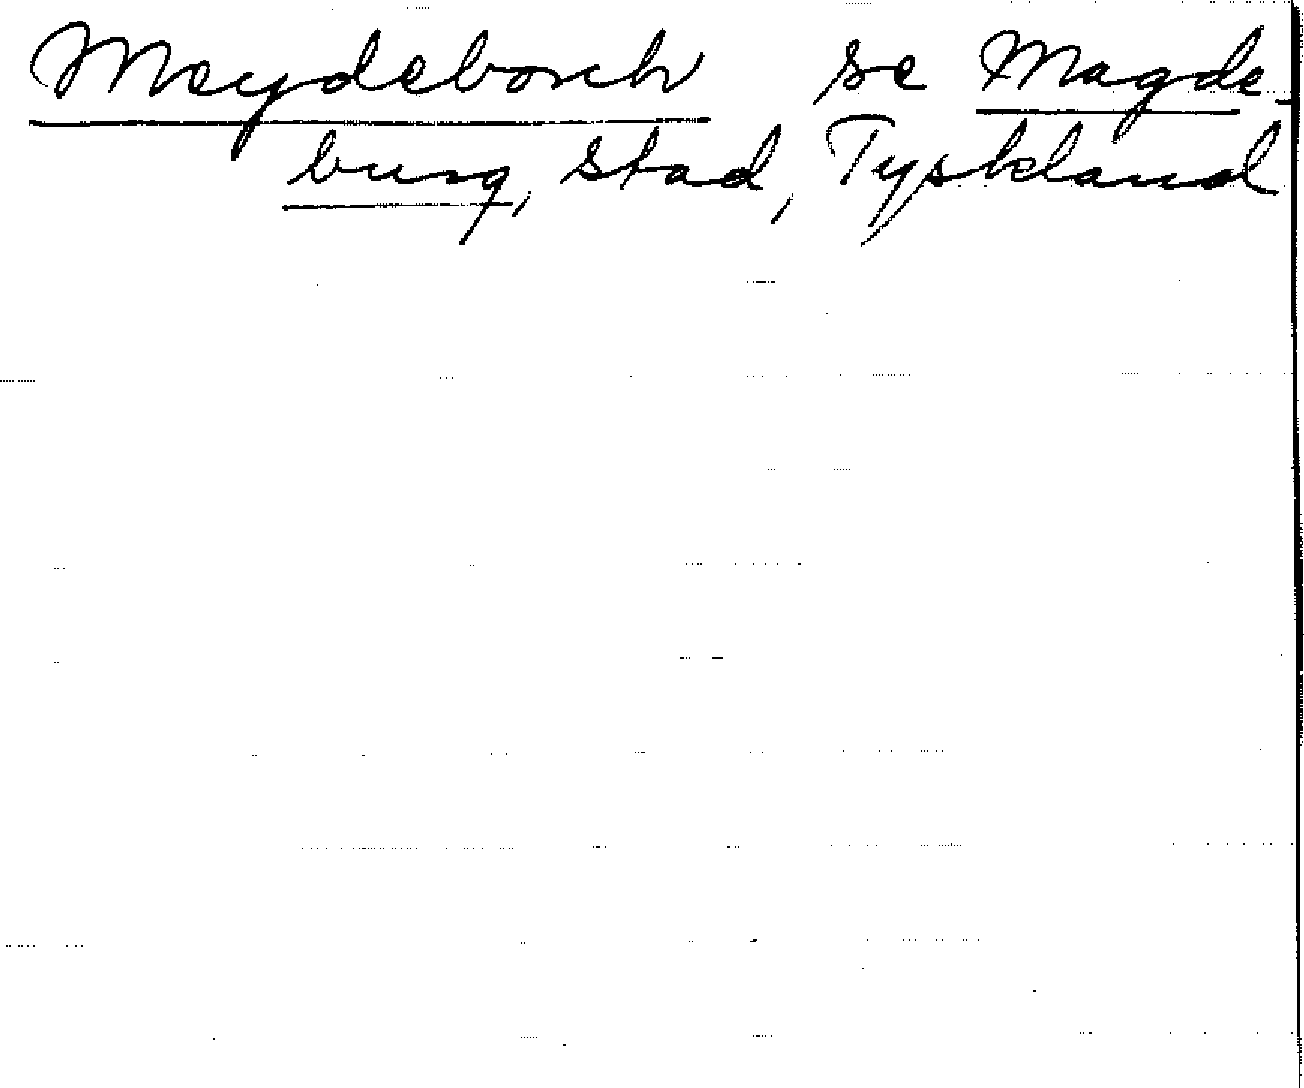 Meydeborch se Magde-
burg, stad, Tyskland